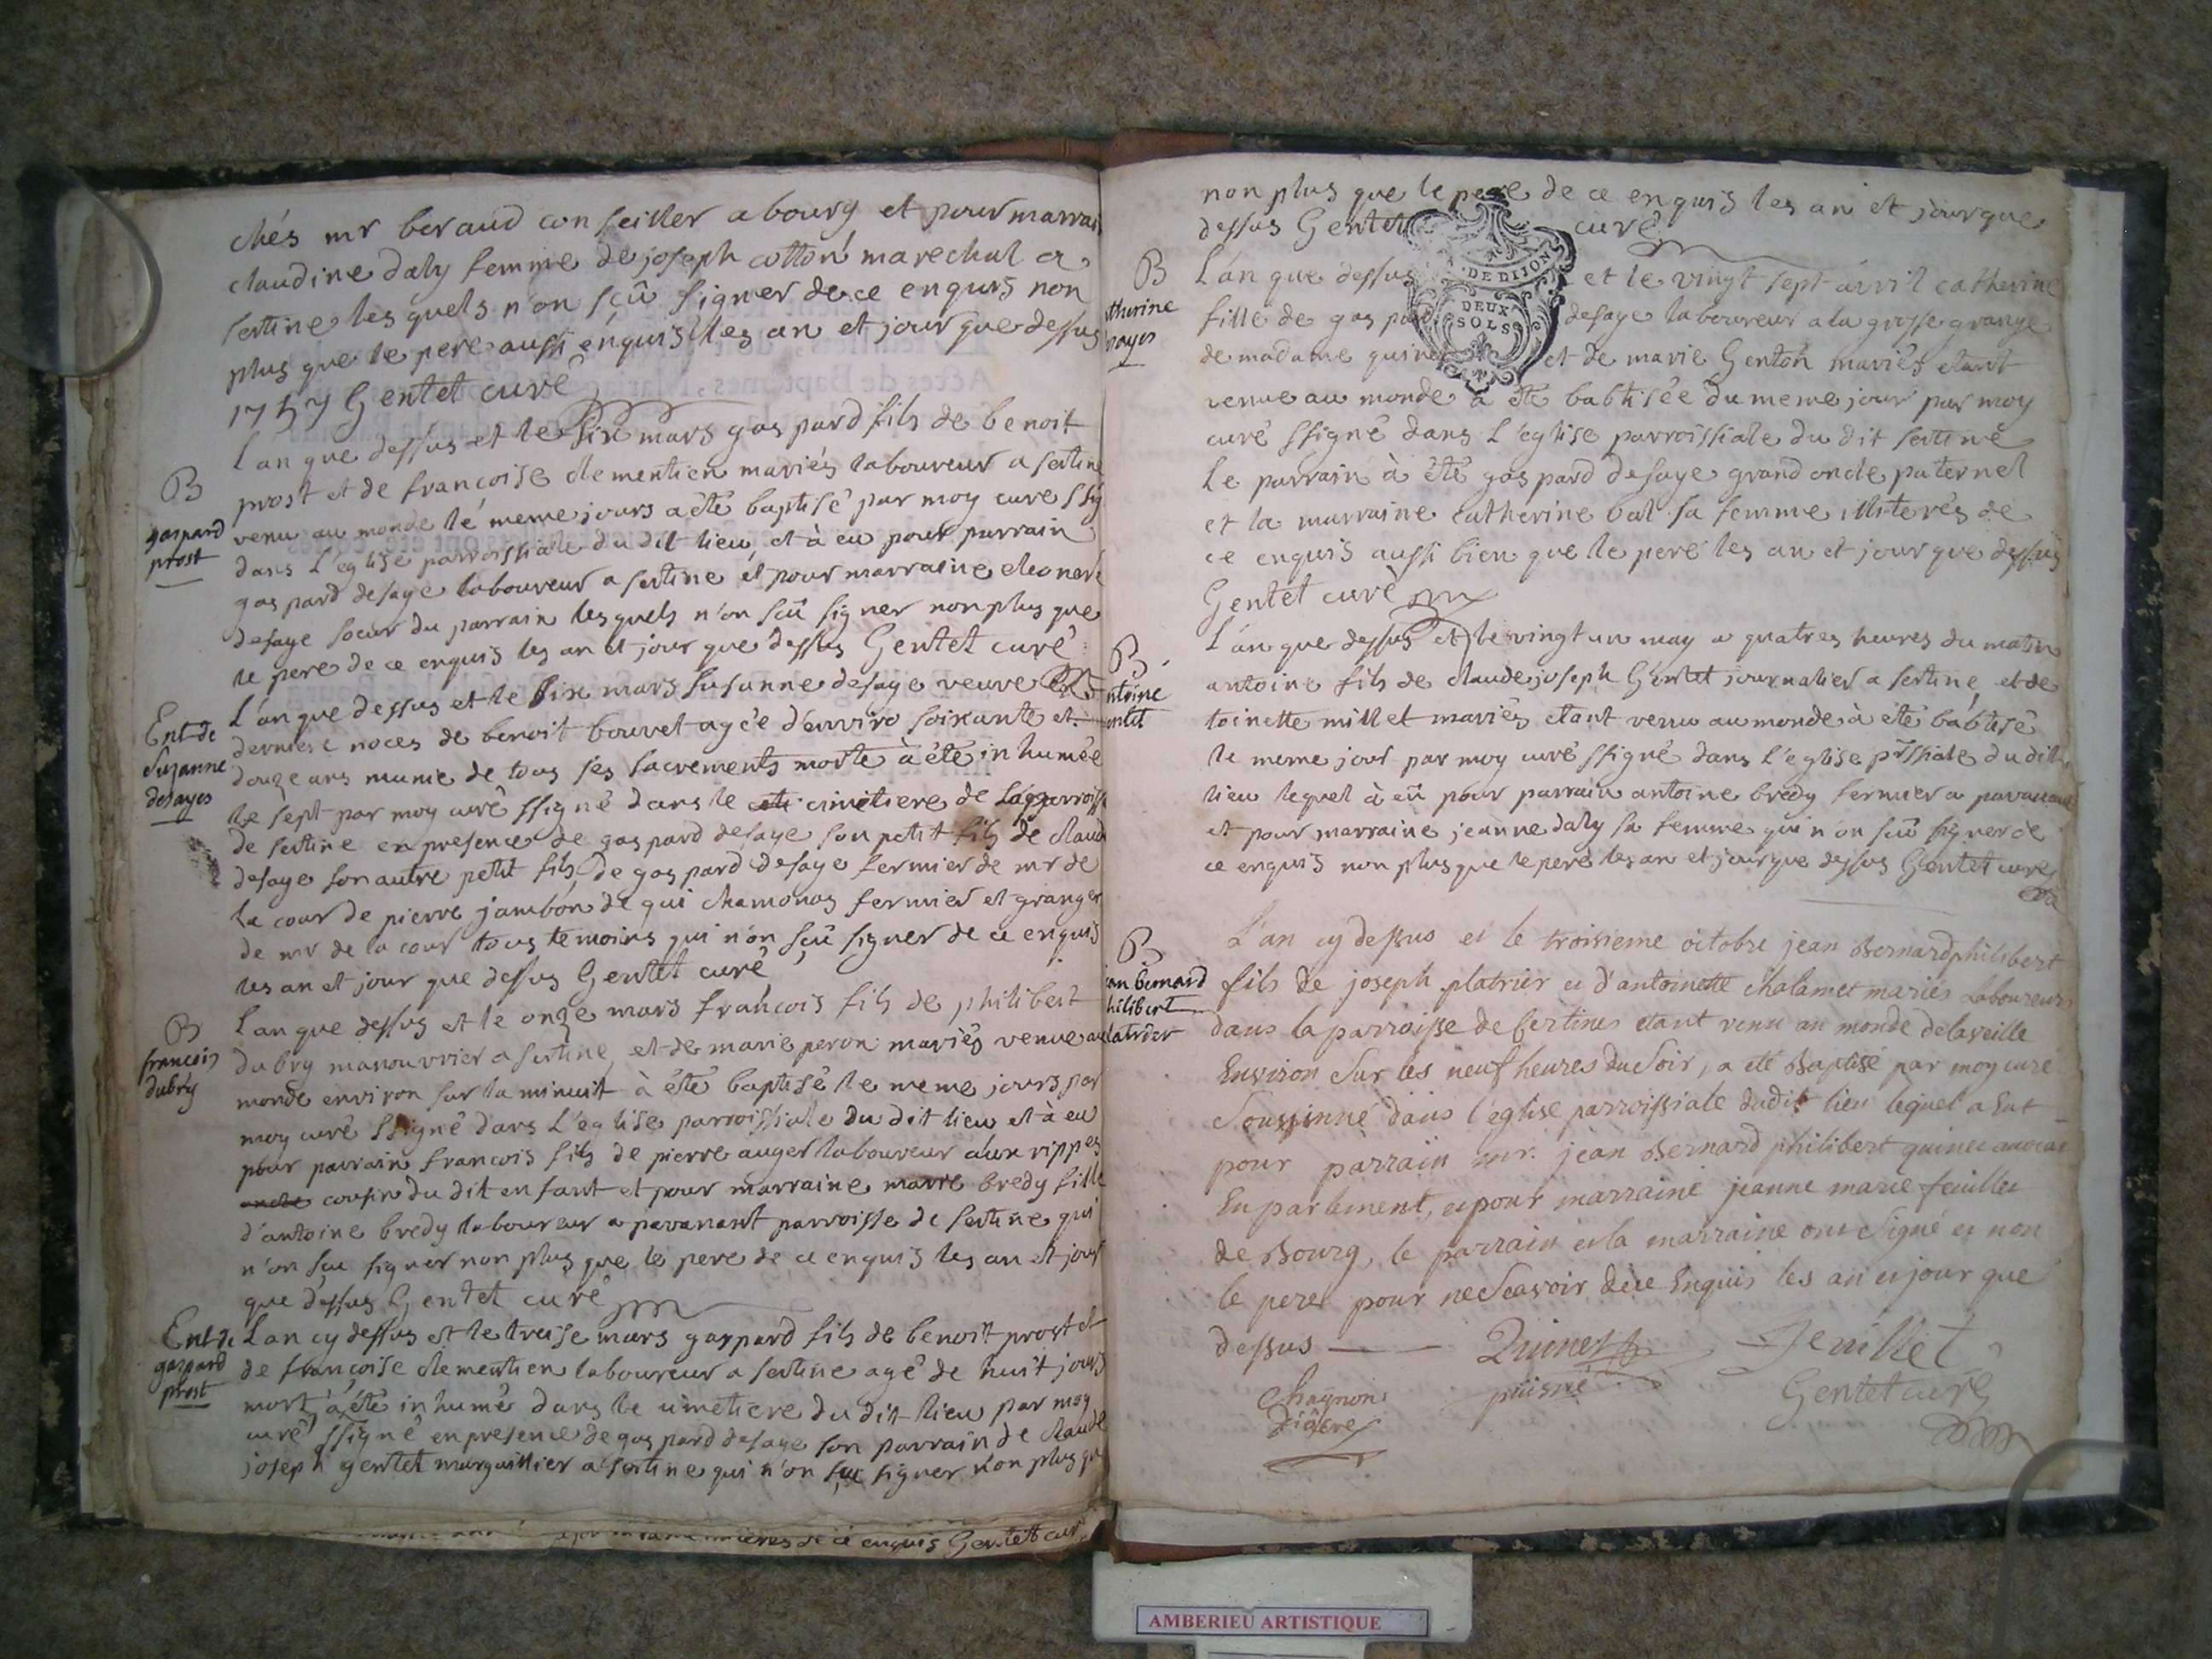 chés mr beraud conseiller a bourg et pour marrai
claudine daly femme de joseph cotton marechal a
sertine les quels n'on sçû signer de ce enquis non
plus que le pere aussi enquis les an et jour que dessus
1757 Gentet curé
B
gaspard
prost
L'an que dessus et le six mars gaspard fils de benoit
prost et de francoise clementien mariés laboureur a sertine
venu au monde le meme jours a été baptisé par moy curé ssig
dans l'eglise parroissiale du dit lieu, et à eu pour parrain
gaspard desaye laboureur a sertine et pour marraine eleonore
desaye soeur du parrain les quels n'on scû signer non plus que
le pere de ce enquis les an et jour que dessus Gentet curé
Ent de
Suzanne
desayes
L'an que dessus et le six mars susanne desaye veuve en
derniere noces de benoit bouvet agée d'enviro soixante et
douze ans munie de tous ses sacrements morte à été inhumée
le sept par moy curé ssigné dans le cimetiere de la parroiss
de sertine en presence de gaspard desaye son petit fils de claud
desaye son autre petit fils, de gaspard desaye fermier de mr de
la cour de pierre jambon de gui chamonas fermier et granger
de mr de la cour tous temoins qui n'on sçû signer de ce enquis
les an et jour que dessus Gentet curé
B
francois
dubry
L'an que dessus et le onze mars francois fils de philibert
dubry manouvrier a sertine, et de marie peron mariés venue au
monde environ sur la minuit à été baptisé le meme jours par
moy curé ssigné dans l'eglise parroissiale du dit lieu et à eu
pour parrain francois fils de pierre auger laboureur aux rippes
oncle cousin du dit enfant et pour marraine marie bredy fille
d'antoine bredy laboureur a pavanant parroisse de sertine qui
n'on scu signer non plus que le pere de ce enquis les an et jour
que dessus Gentet curé
Ent de
gaspard
prost
L'an cy dessus et le treise mars gaspard fils de benoit prost et
de françoise clementien laboureur a sertine agé de huit jours
mort à été inhumé dans le cimetiere du dit lieu par moy
curé ssigné en presence de gaspard desaye son parrain de claude
joseph gentet marguillier a sertine qui n'on scu signer non plus qu
de ce enquis Gentet cur
non plus que le pere de ce enquis les an et jour que
dessus Gentet curé
DE DIJON
DEUX
SOLS
B
therine
sayes
L'an que dessus et le vingt sept avril catherine
fille de gaspard desaye laboureur a la grosse grange
de madame quinet et de marie Genton mariés etant
venue au monde a été babtisée du meme jour par moy
curé ssigné dans l'eglise parroissiale du dit sertine
Le parrain à été gaspard desaye grand oncle paternel
et la marraine catherine bal sa femme illiterés de
ce enquis aussi bien que le pere les an et jour que dessus
Gentet curé
B
ntoine
entet
L'an que dessus et le vingt un may a quatres heures du matin
antoine fils de claude joseph Gentet journalier a sertine, et de
toinette millet mariés etant venu au monde à été babtisé
le meme jour par moy curé ssigné dans l'eglise prssiale du dit
lieu lequel à eû pour parrain antoine bredy fermier a pavanant
et pour marraine jeanne daly sa femme qui n'on scû signer de
ce enquis non plus que le pere les an et jour que dessus Gentet curé
B
ean bernard
hilibert
latrier
L'an cy dessus et le troisieme octobre jean Bernard philibert
fils de joseph platrier et d'antoinette chalamet mariés Laboureurs
dans la parroisse de Certines etant venu au monde de la veille
Environ Sur les neuf heures du Soir, a eté Baptisé par moy curé
Soussinné dans l'eglise parroissiale dudit lieu lequel a Eut
pour parrain mr. jean Bernard philibert quinet avocat
En parlement, et pour marraine jeanne marie feuillet
de Bourg, le parrain et la marraine ont Signé et non
le perer pour ne Scavoir de ce Enquis les an et jour que
dessus Quinet Feuillet
Chagnon puisné Gentet curé
diacre
AMBERIEU ARTISTIQUE